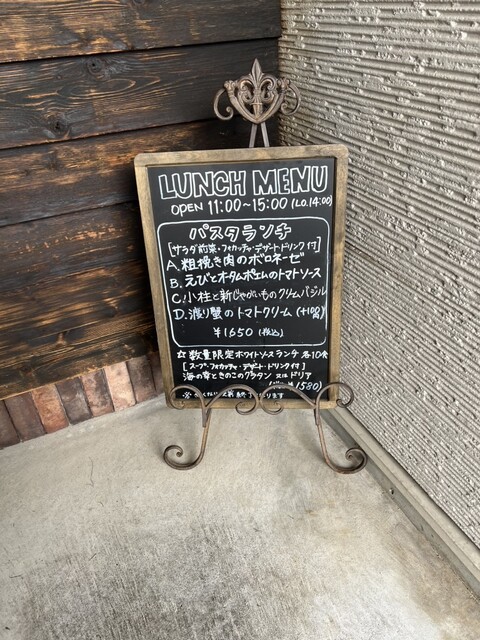 LUNCH MENU
OPEN 11:00~15:00 (L.O.14:00)
パスタランチ
[サラダ前菜・フォカッチャ・デザート・ドリンク付]
A. 粗挽き肉のボロネーゼ
B. えびとオータムポエムのトマトソース
C. 小柱と新じゃがいものクリームバジル
D. 渡り蟹のトマトクリーム
¥1650 (税込)
☆ 数量限定ホワイトソースランチ 各10食
[スープ・フォカッチャ・デザート・ドリンク付]
海の幸ときのこのグラタン 又は ドリア
¥1580)
※ 終了